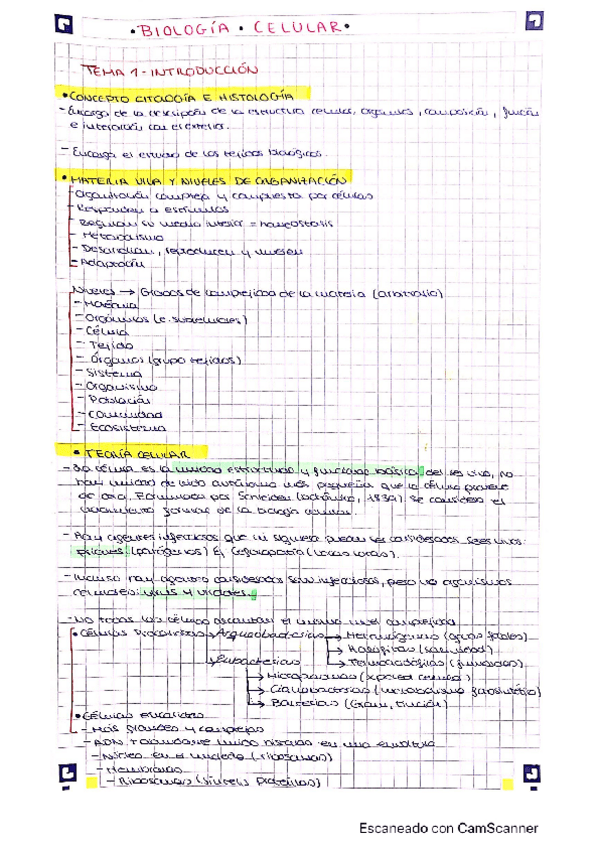 • BIOLOGÍA • CELULAR •
TEMA 1 - INTRODUCCIÓN
• CONCEPTO CITOLOGÍA E HISTOLOGÍA
- Encarga de la descripción de la estructura celular, organros, composición, función
e interacción con el exterior.
- Encarga el estudio de los tejidos biológicos.
• MATERIA VIVA Y NIVELES DE ORGANIZACIÓN
- Organización compleja y compuesta por células
- Responden a estímulos
- Regulan su medio interior = homeostasis
- Metabolismo
- Desarrollan, reproducen y mueren
- Adaptación
Niveles → Grados de complejidad de la materia (arbitrario)
- Molécula
- Orgánulos (e. subcelulares)
- Célula
- Tejido
- Órganos (grupo tejidos)
- Sistema
- Organismo
- Población
- Comunidad
- Ecosistema
• TEORÍA CELULAR
- La célula es la unidad estructural y funcional básica del ser vivo, no
hay unidad de vida autónoma más pequeña que la célula proviene
de otra. Formulada por Schleiden (botánico, 1838). Se considera el
nacimiento formal de la biología celular.
- Hay agentes infecciosos que ni siquiera pueden ser considerados seres vivos:
priones (patógenos) Ej. (vacas locas).
- Incluso hay agentes considerados semi infecciosos, pero no organismos
celulares: virus y viroides.
- No todas las células alcanzan el mismo nivel complejidad
• Células Procariotas → Arqueobacterias → (aguas fecales)
→ Halófilas (salinidad)
→ Eubacterias → (fumarolas)
→ Micoplasmas (xpared celular)
→ Cianobacterias (metabolismo fotosintético)
→ Bacterias (Gram, tinción)
• Células eucariotas
- Más grandes y complejas
- ADN
- Núcleo (ribosomas)
- Membranas
- Ribosomas (síntesis proteínas)
Escaneado con CamScanner